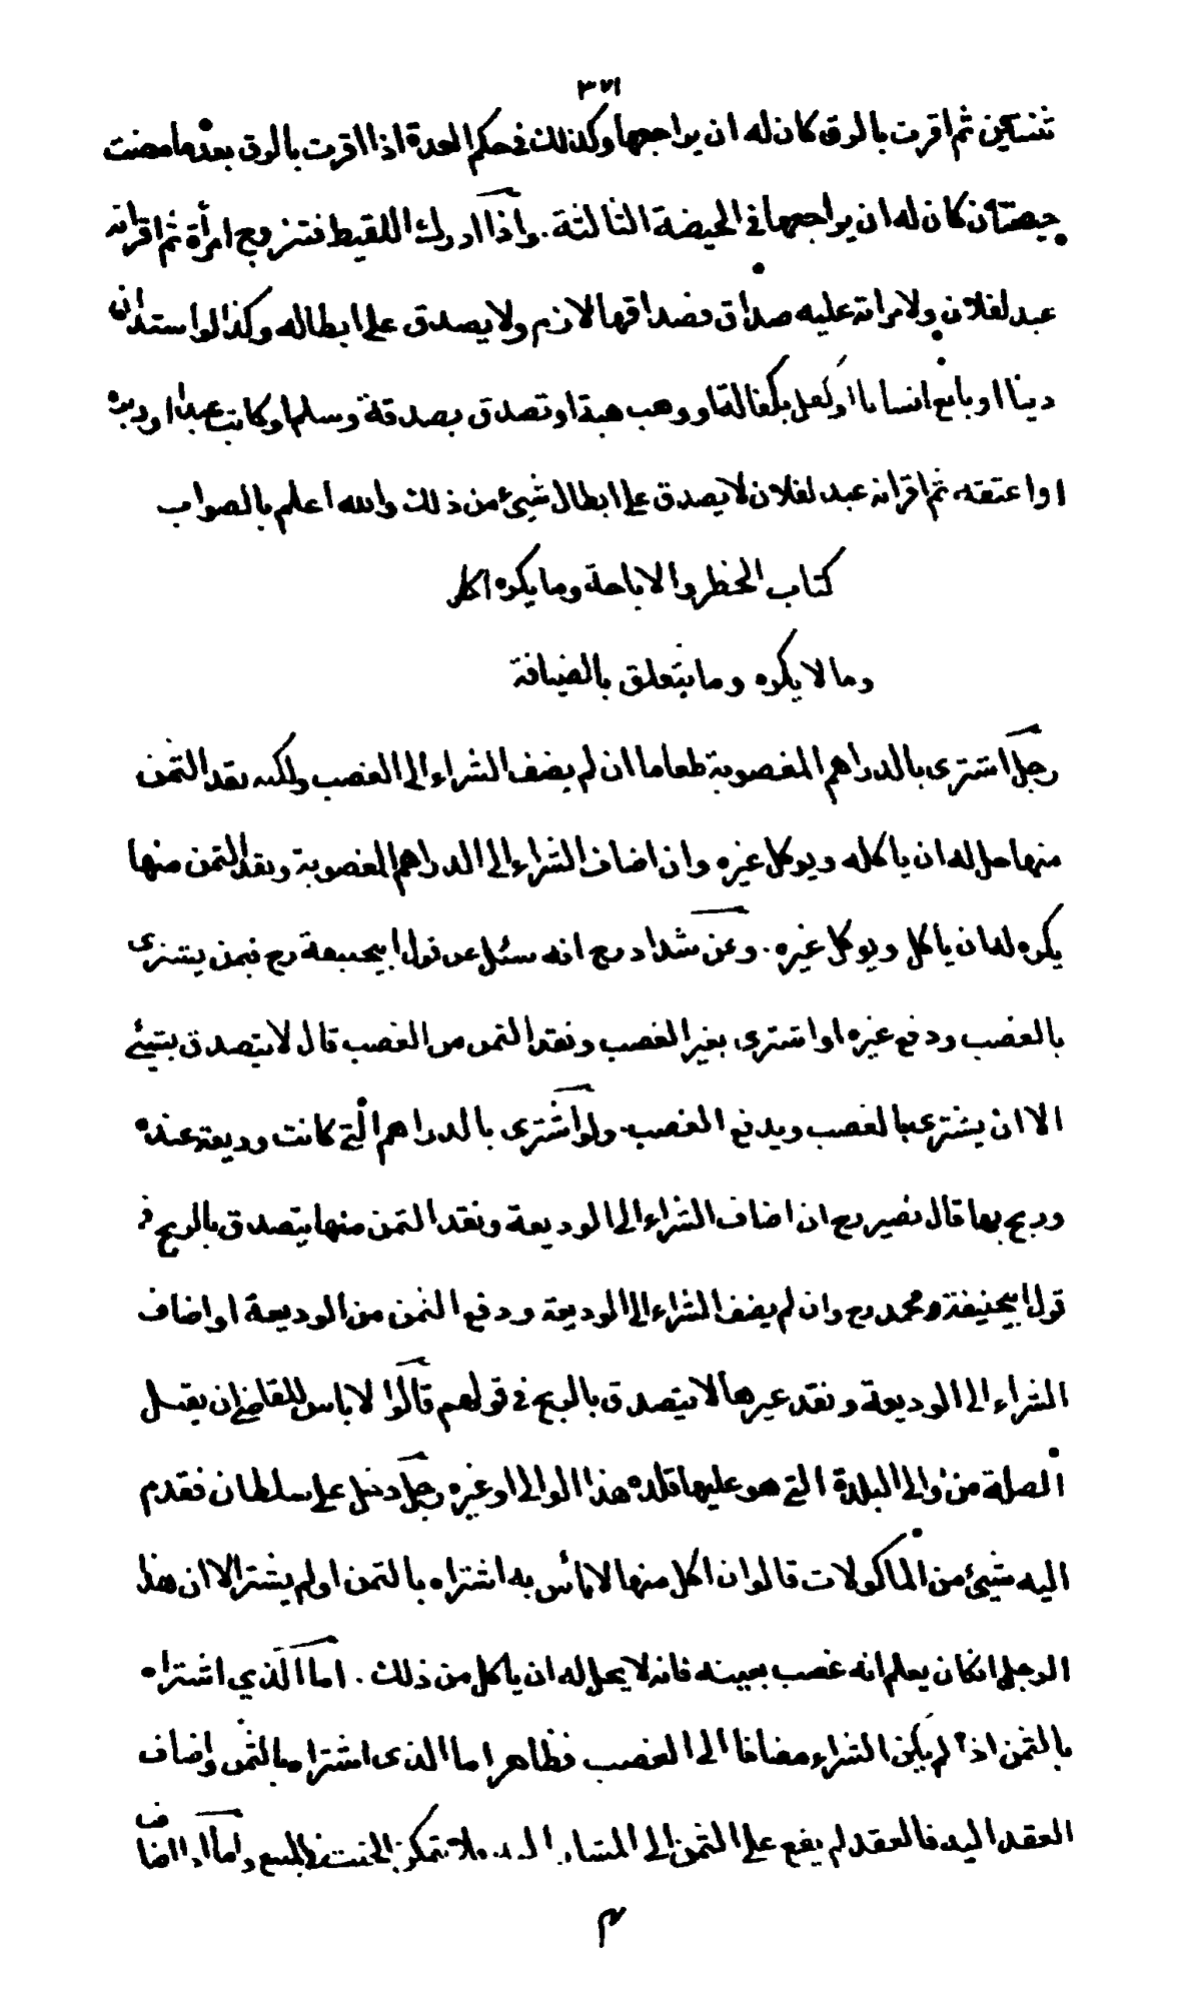 ٣٧١
تنتين ثم اقرت بالرق كان له ان يراجعها وكذلك في حكم العدة اذا اقرت بالرق بعد ما مضت
حيضتان كان له ان يراجعها في الحيضة الثالثة . واذا ادرك اللقيط فتزوج امرأة ثم اقر انه
عبد لفلان ولامراته عليه صداق فصداقها لازم ولا يصدق على ابطاله وكذا لو استدان
دينا او بايع انسانا او كفل بكفالة او وهب هبة او تصدق بصدقة وسلم او كاتب عبدا او دبره
او اعتقه ثم اقر انه عبد لفلان لا يصدق على ابطال شيئ من ذلك والله اعلم بالصواب
كتاب الحظر والاباحة وما يكره اكله
وما لا يكره وما يتعلق بالضيافة
رجل اشترى بالدراهم المغصوبة طعاما ان لم يضف الشراء الى الغصب ولكنه نقد الثمن
منها حل له ان ياكله ويوكل غيره وان اضاف الشراء الى الدراهم المغصوبة ونقد الثمن منها
يكره له ان ياكل ويوكل غيره . وعن شداد رح انه سئل عن قول ابيحنيفة رح فيمن يشترى
بالغصب ودفع غيره او اشترى بغير الغصب ونقد الثمن من الغصب قال لا يتصدق بشيئ
الا ان يشترى بالغصب ويدفع الغصب . ولو اشترى بالدراهم التي كانت وديعة عنده
وربح بها قال نصير رح ان اضاف الشراء الى الوديعة ونقد الثمن منها يتصدق بالربح في
قول ابيحنيفة ومحمد رح وان لم يضف الشراء الى الوديعة ودفع الثمن من الوديعة او اضاف
الشراء الى الوديعة ونقد غيرها لا يتصدق بالربح في قولهم قالوا لا باس للقاضي ان يقبل
الصلة من والى البلدة التي هو عليها قلده هذا الوالى او غيره رجل دخل على سلطان فقدم
اليه شيئ من الماكولات قالوا ان اكل منها لا بأس به اشتراه بالثمن او لم يشتر الا ان هذا
الرجل ان كان يعلم انه غصب بعينه فانه لا يحل له ان ياكل من ذلك . اما الذي اشتراه
بالثمن اذا لم يكن الشراء مضافا الى الغصب فظاهر اما الذى اشتراه بالثمن واضاف
العقد اليه فالعقد لم يقع على الثمن المشار اليه فلا يتمكن الخبث في المبيع واما اذا اضاف
م